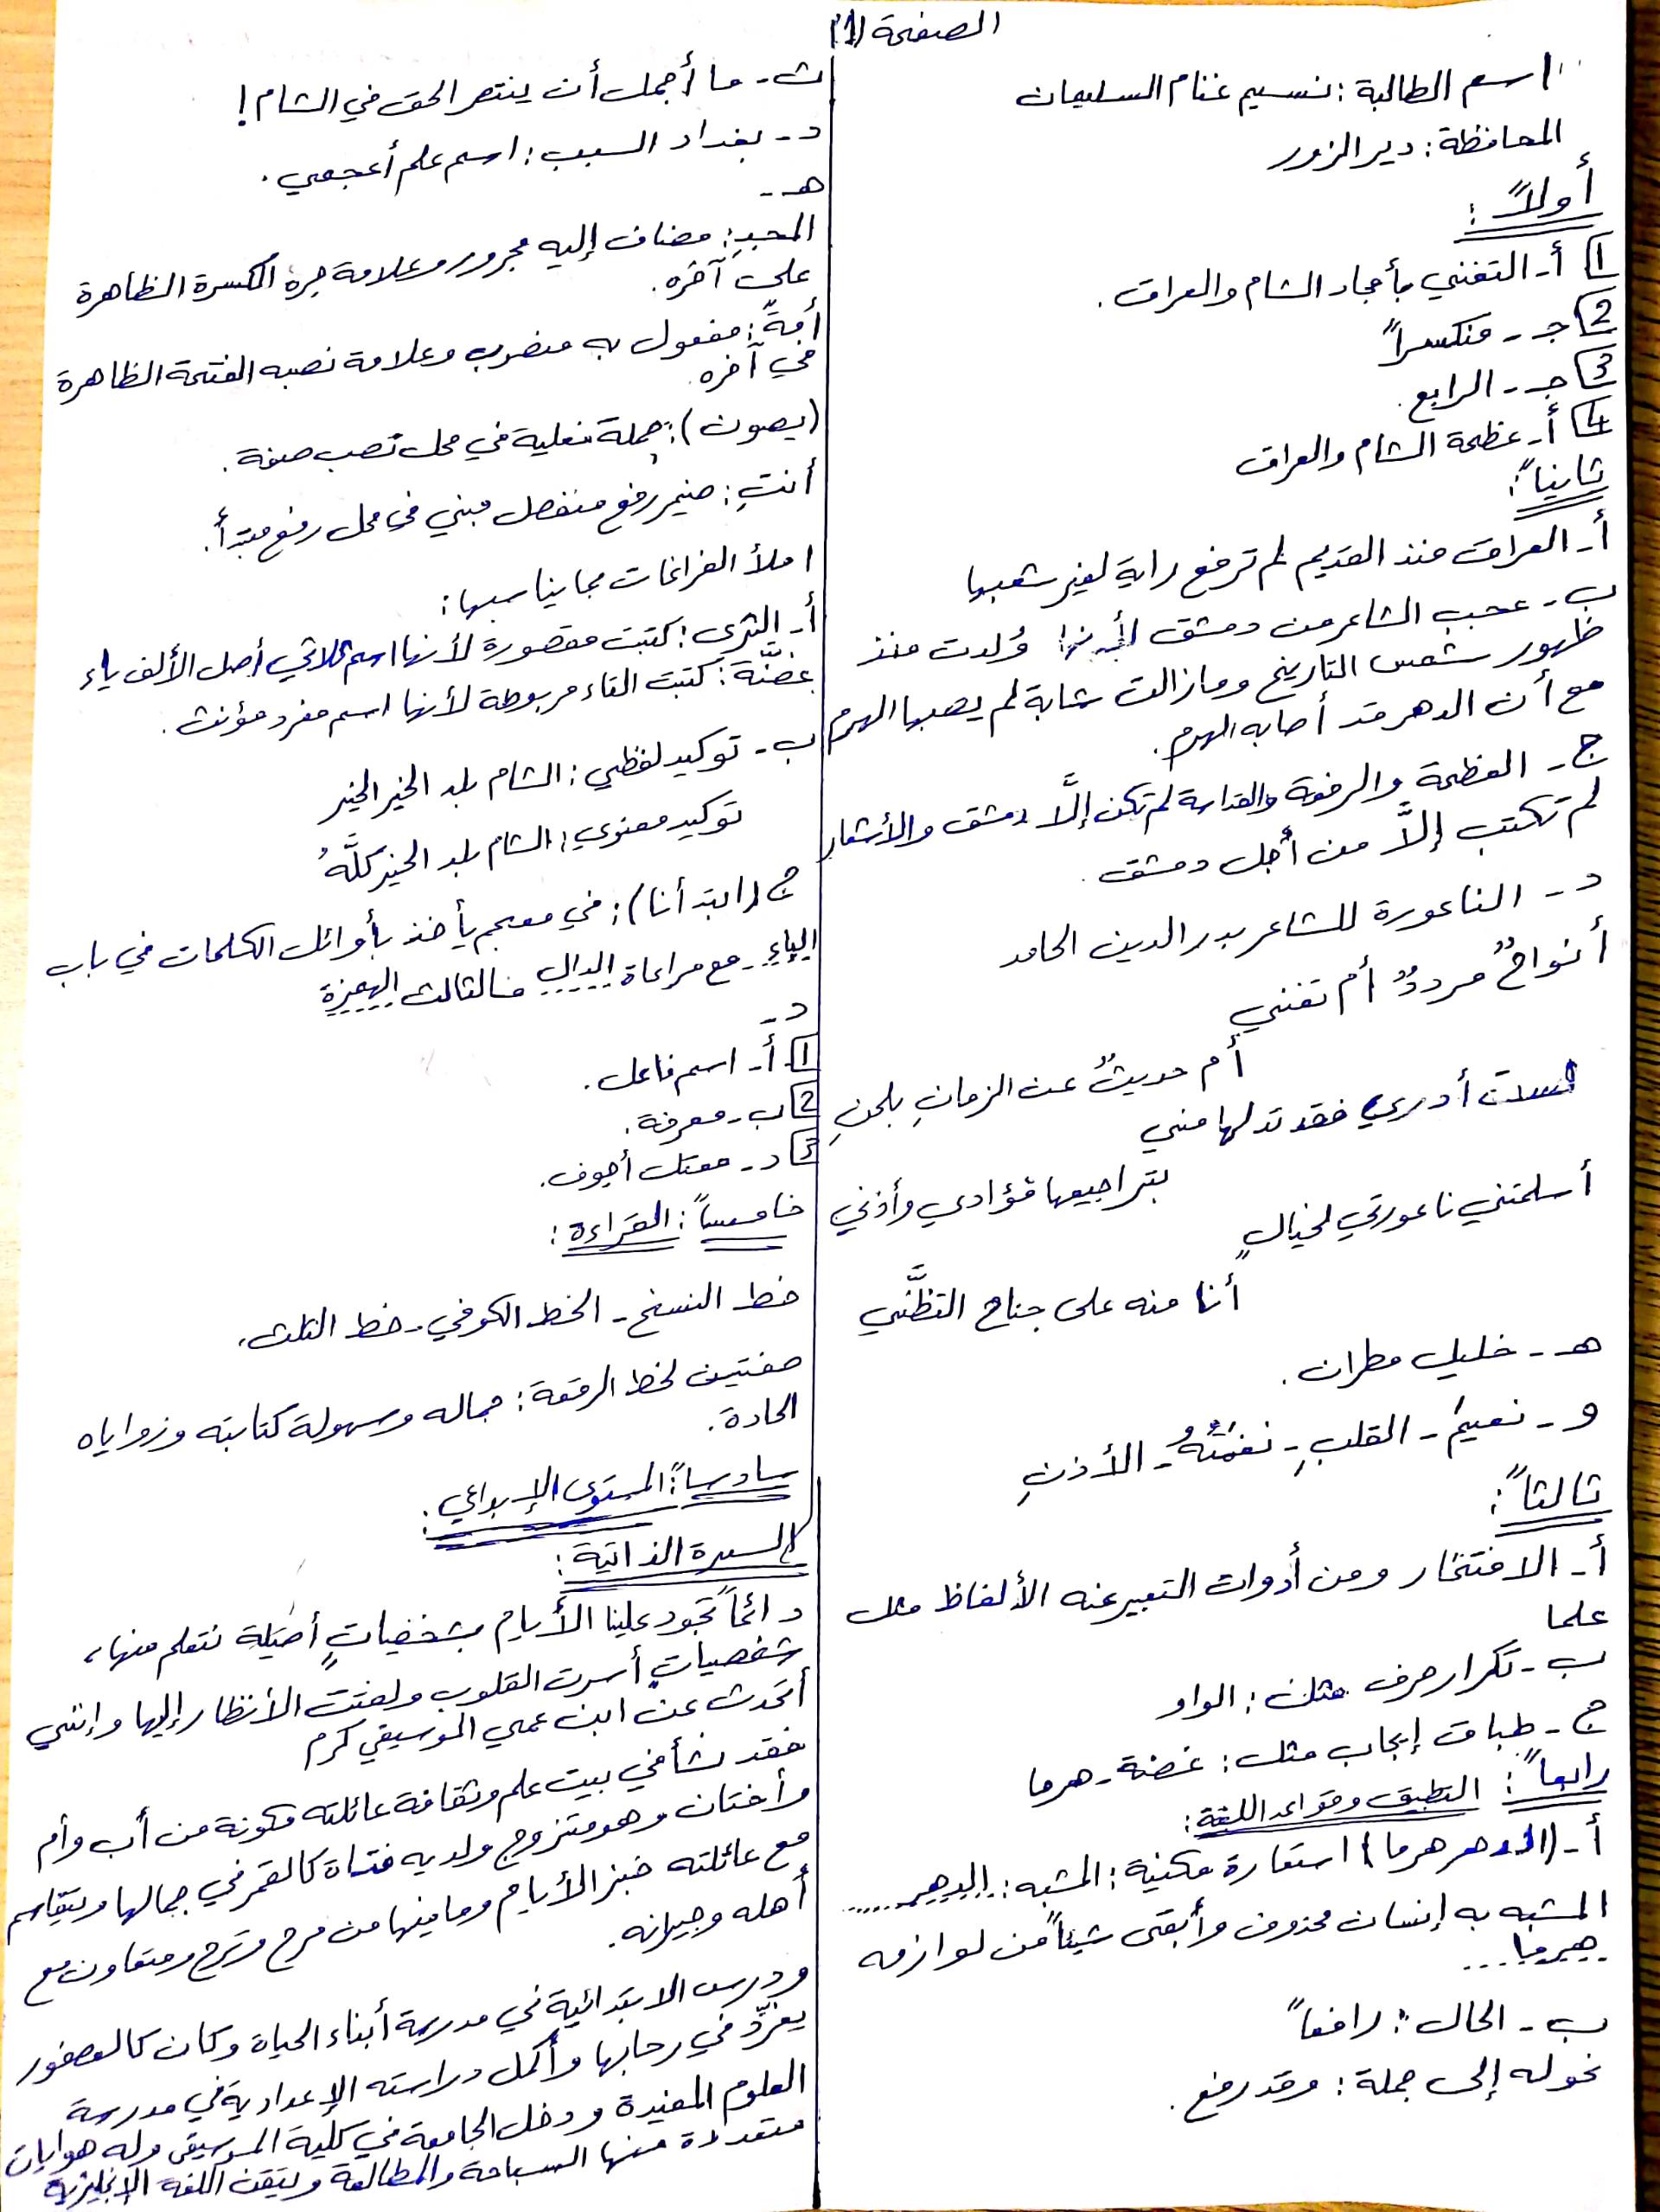 الصفحة (1)
اسم الطالبة: نسيم غنام السليمان
المحافظة: دير الزور
أولاً:
1 أ- التغني بأمجاد الشام والعراق.
2 جـ - منكسراً
3 جـ - الرابع.
4 أ- عظمة الشام والعراق
ثانياً:
أ- العراق منذ القديم لم ترفع راية لغير شعبها
ب- عجب الشاعر من دمشق لأنها وُلدت منذ
ظهور شمس التاريخ ومازالت شابة لم يصبها الهرم
مع أن الدهر قد أصابه الهرم.
ج- العظمة والرفعة والقداسة لم تكن إلَّا دمشق والأشعار
لم تكتب إلَّا من أجل دمشق.
د- الناعورة للشاعر بدر الدين الحامد
أنواحٌ مرددٌ أم تغني
أم حديثٌ عن الزمانِ بلحنِ
لست أدري فقد تدلها مني
بتراجيعها فؤادي وأذني
أسلمتني ناعورتي لخيالٍ
أنا منه على جناح التظنَّي
هـ - خليل مطران.
و- نعيمُ - القلبِ - نغمتُهُ - الأذنِ
ثالثاً:
أ- الافتخار ومن أدوات التعبير عنه الألفاظ مثل
علما
ب- تكرار حرف مثل: الواو
ج- طباق إيجاب مثل: غضنة - هرما
رابعاً: التطبيق وقواعد اللغة:
أ- (الدهر هرما) استعارة مكنية: المشبه: الدهر
المشبه به إنسان محذوف وأبقى شيئاً من لوازمه
هرما
ب- الحال: رافعاً
نحوله إلى جملة: وقد رفع.
ث- ما أجمل أن ينتصر الحق في الشام!
د- بغداد السبب: اسم علم أعجمي.
هـ -
المجدِ: مضاف إليه مجرور وعلامة جره الكسرة الظاهرة
على آخره.
أمةً: مفعول به منصوب وعلامة نصبه الفتحة الظاهرة
في آخره.
(يصون): جملة فعلية في محل نصب صفة.
أنتِ: ضمير رفع منفصل مبني في محل رفع مبتدأ.
املأ الفراغات بما يناسبها:
أ- الثرى: كتبت مقصورة لأنها اسم ثلاثي أصل الألف ياء
غضَّة: كتبت التاء مربوطة لأنها اسم مفرد مؤنث.
ب- توكيد لفظي: الشام بلد الخير الخير
توكيد معنوي: الشام بلد الخير كلَّهُ
ج (ابتدأنا): في معجم يأخذ بأوائل الكلمات في باب
الباء مع مراعاة الدال فالثالث الهمزة
د-
1 أ- اسم فاعل.
2 ب- معرفة.
3 د- معتل أجوف.
خامساً: القراءة:
خط النسخ - الخط الكوفي - خط الثلث.
صفتين لخط الرقعة: جماله وسهولة كتابته وزواياه
الحادة.
سادساً: المستوى الإبداعي:
السيرة الذاتية:
دائماً تجود علينا الأيام بشخصياتٍ أصيلة نتعلم منها،
شخصياتٍ أسرت القلوب ولفتت الأنظار إليها وإنني
أتحدث عن ابن عمي الموسيقي كرم
فقد نشأ في بيت علم وثقافة عائلته مكونة من أب وأم
وأختان وهو متزوج ولديه فتاة كالقمر في جمالها ويتقاسم
مع عائلته خبز الأيام وما فيها من فرح وترح ومتعاون مع
أهله وجيرانه.
ودرس الابتدائية في مدرسة أبناء الحياة وكان كالعصفور
يغرِّد في رحابها وأكمل دراسته الإعدادية في مدرسة
العلوم المفيدة ودخل الجامعة في كلية الموسيقى وله هوايات
متعددة منها السباحة والمطالعة ويتقن اللغة الإنجليزية